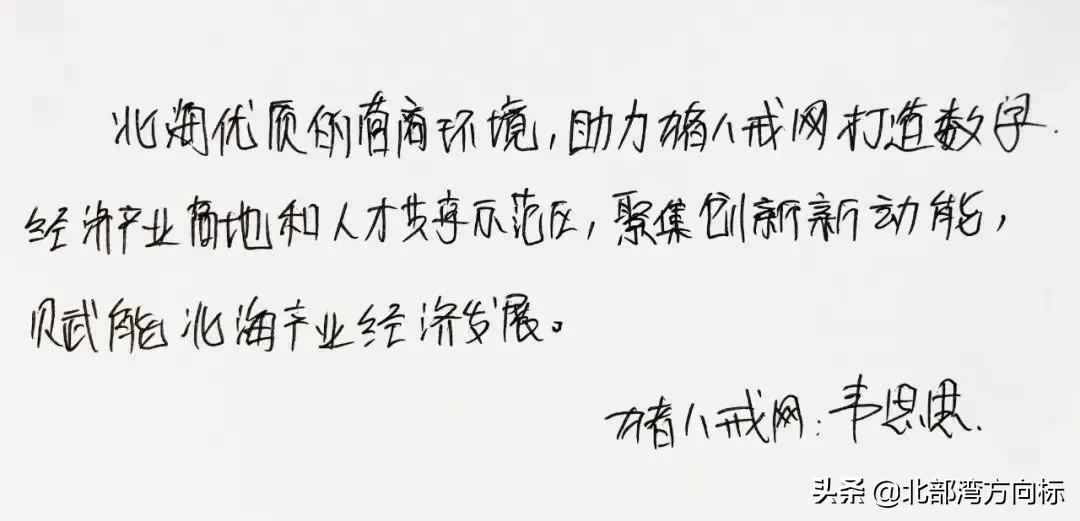 北海优质的营商环境，助力猪八戒网打造数字
经济产业高地和人才共享示范区，聚集创新新动能，
赋能北海产业经济发展。
猪八戒网：韦思思.
头条 @北部湾方向标